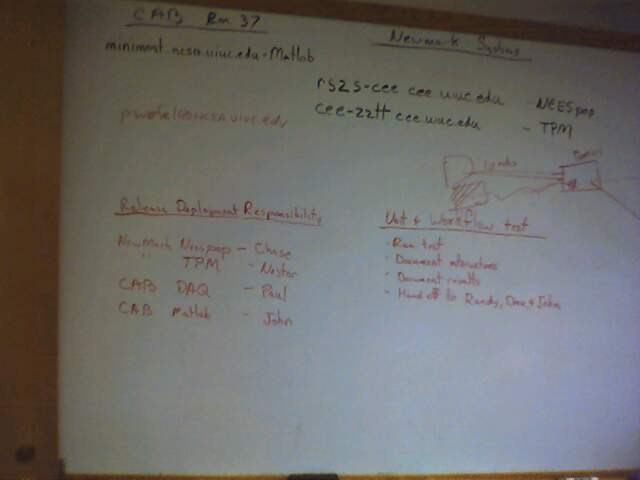 CAB Rm 37
minimost.ncsa.uiuc.edu - Matlab
Newmark Systems
cee.uiuc.edu - NEESpop
cee.uiuc.edu - TPM
Release Deployment Responsibility
NewMark Neespop - Chase
" TPM - Nestor
CAB DAQ - Paul
CAB Matlab - John
Unit & Workflow test
- Run test
- Document
- Document results
- Hand off to Randy, Dan & John